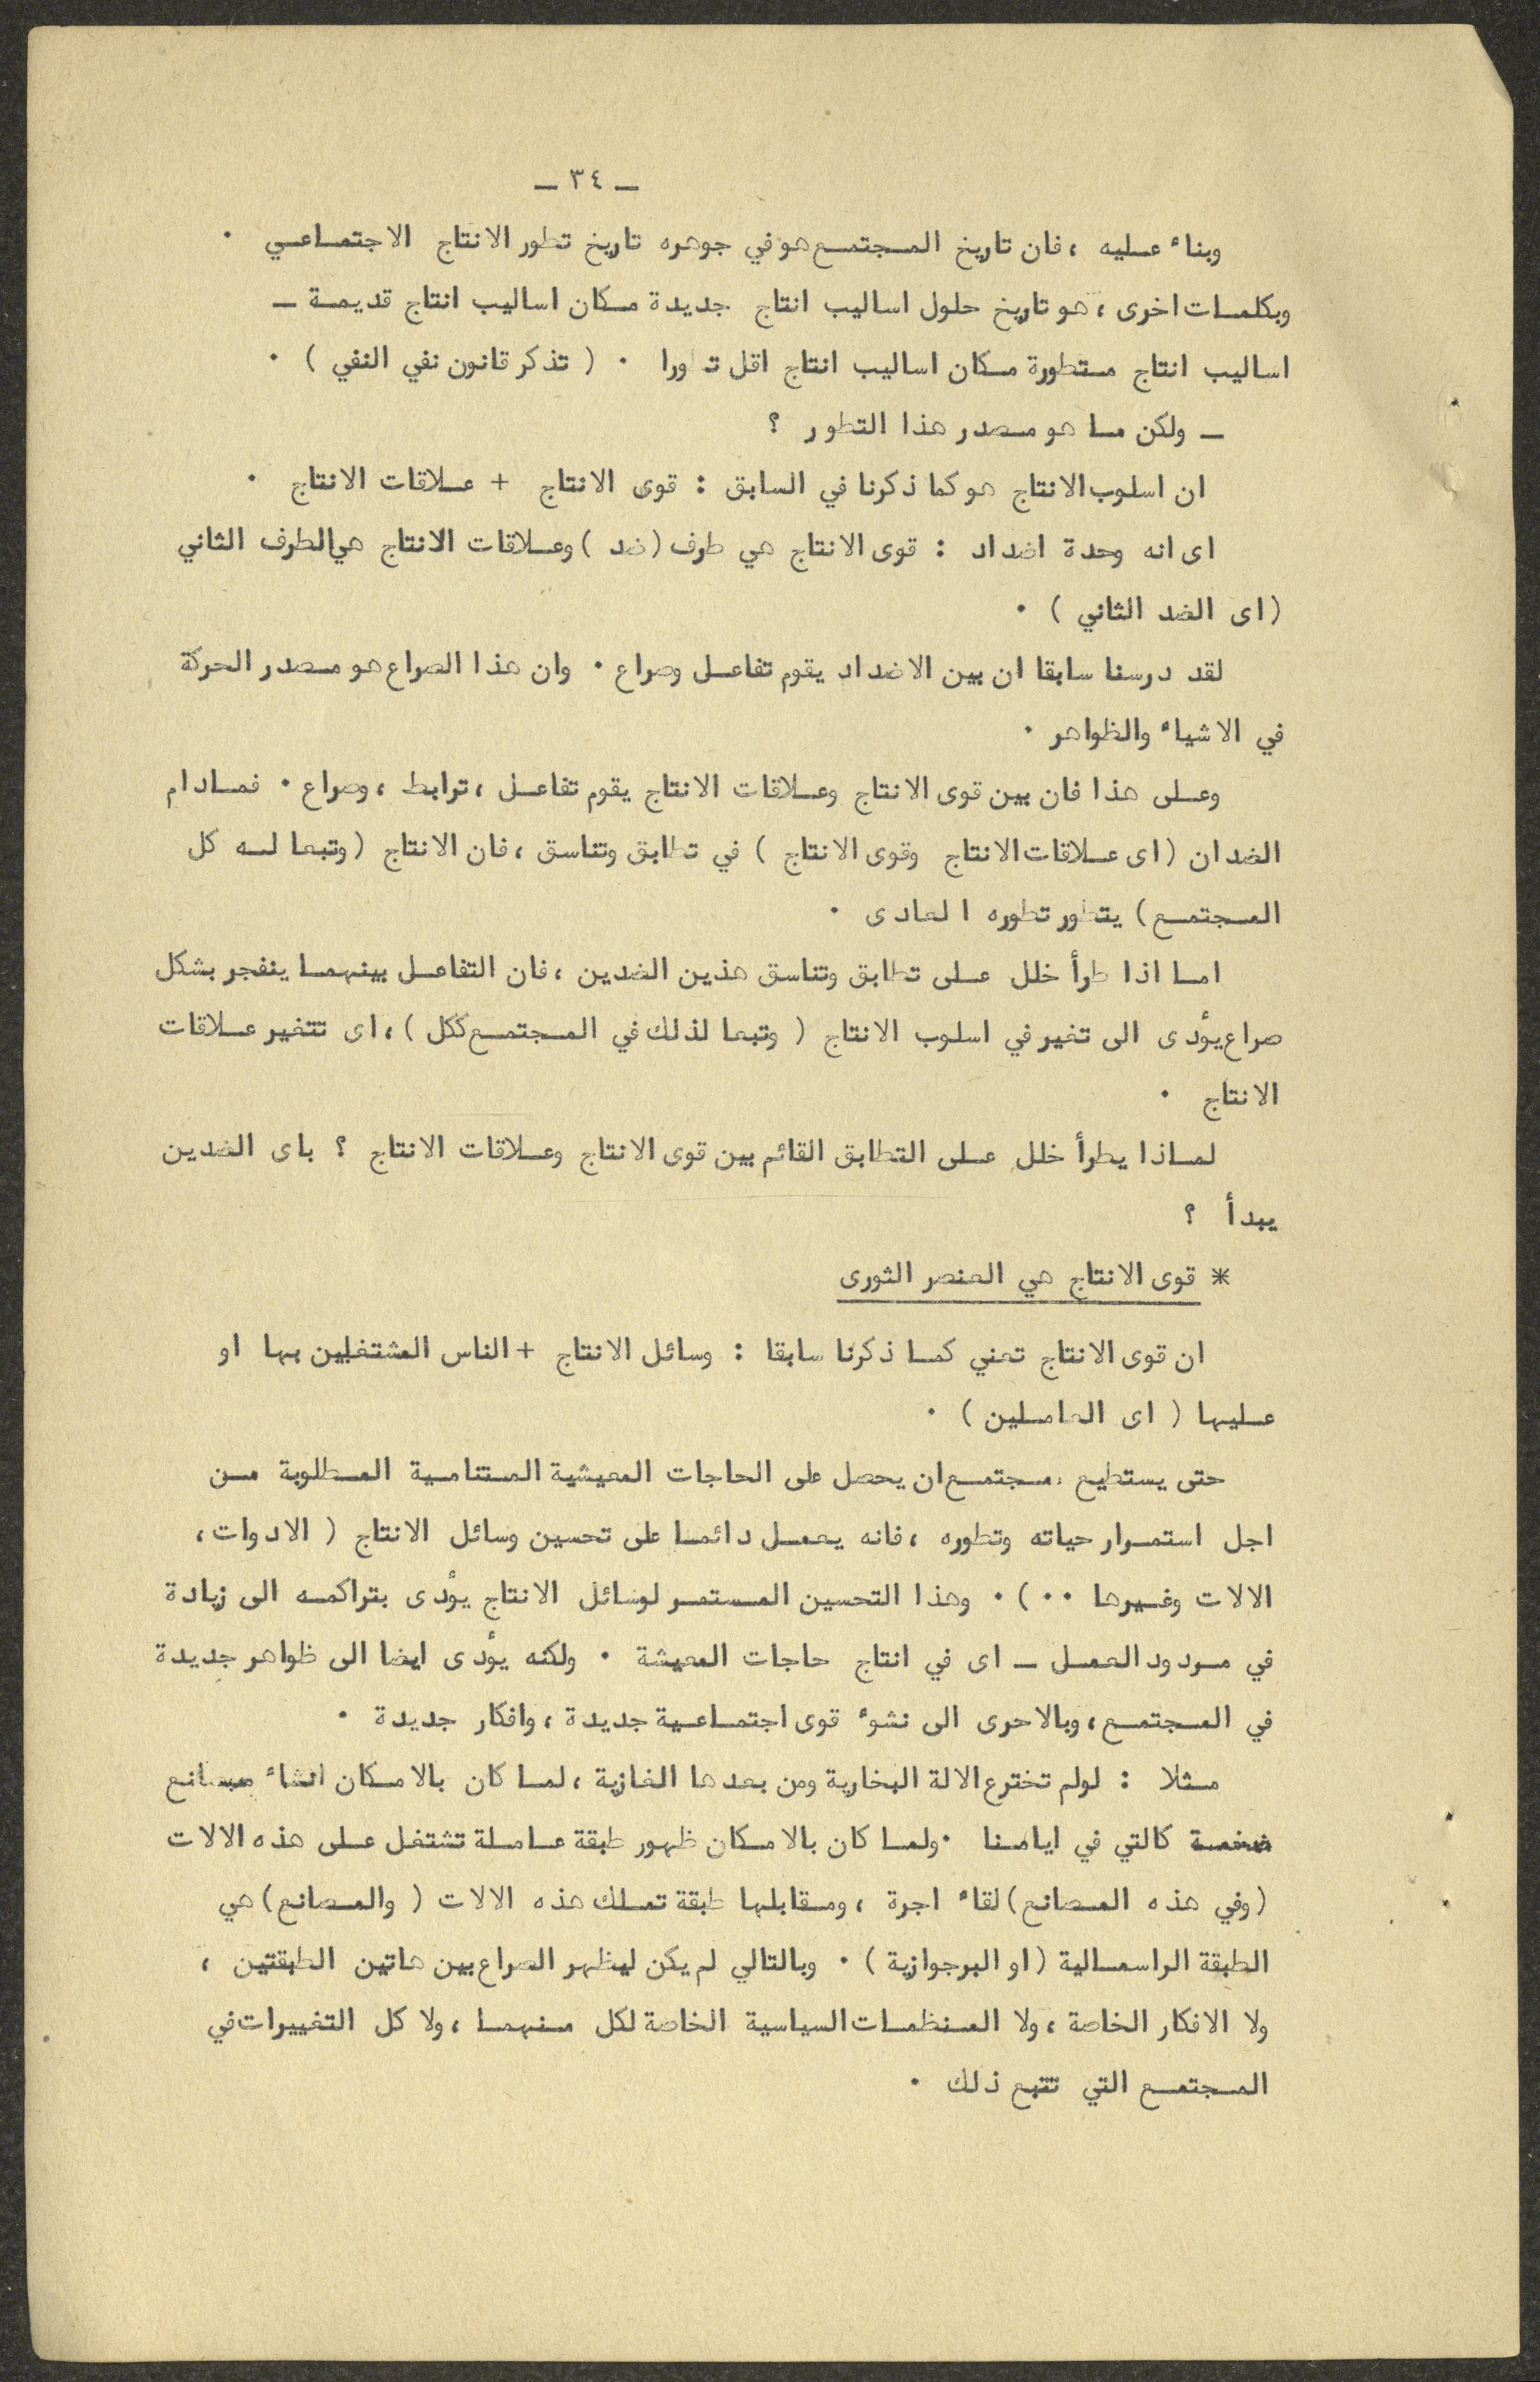 ـ ٣٤ ـ
وبناء عليه ، فان تاريخ المجتمع هو في جوهره تاريخ تطور الانتاج الاجتماعي ٠
وبكلمات اخرى ، هو تاريخ حلول اساليب انتاج جديدة مكان اساليب انتاج قديمة ـ
اساليب انتاج متطورة مكان اساليب انتاج اقل تطورا ٠ ( تذكر قانون نفي النفي ) ٠
ـ ولكن ما هو مصدر هذا التطور ؟
ان اسلوب الانتاج هو كما ذكرنا في السابق : قوى الانتاج + علاقات الانتاج ٠
اى انه وحدة اضداد : قوى الانتاج هي طرف ( ضد ) وعلاقات الانتاج هي الطرف الثاني
( اى الضد الثاني ) ٠
لقد درسنا سابقا ان بين الاضداد يقوم تفاعل وصراع ٠ وان هذا الصراع هو مصدر الحركة
في الاشياء والظواهر ٠
وعلى هذا فان بين قوى الانتاج وعلاقات الانتاج يقوم تفاعل ، ترابط ، وصراع ٠ فمادام
الضدان ( اى علاقات الانتاج وقوى الانتاج ) في تطابق وتناسق ، فان الانتاج ( وتبعا له كل
المجتمع ) يتطور تطوره العادى ٠
اما اذا طرأ خلل على تطابق وتناسق هذين الضدين ، فان التفاعل بينهما ينفجر بشكل
صراع يؤدى الى تغير في اسلوب الانتاج ( وتبعا لذلك في المجتمع ككل ) ، اى تتغير علاقات
الانتاج ٠
لماذا يطرأ خلل على التطابق القائم بين قوى الانتاج وعلاقات الانتاج ؟ باى الضدين
يبدأ ؟
* قوى الانتاج هي العنصر الثورى
ان قوى الانتاج تعني كما ذكرنا سابقا : وسائل الانتاج + الناس المشتغلين بها او
عليها ( اى العاملين ) ٠
حتى يستطيع مجتمع ان يحصل على الحاجات المعيشية المتنامية المطلوبة من
اجل استمرار حياته وتطوره ، فانه يعمل دائما على تحسين وسائل الانتاج ( الادوات ،
الالات وغيرها ٠٠ ) ٠ وهذا التحسين المستمر لوسائل الانتاج يؤدى بتراكمه الى زيادة
في مردود العمل ـ اى في انتاج حاجات المعيشة ٠ ولكنه يؤدى ايضا الى ظواهر جديدة
في المجتمع ، وبالاحرى الى نشوء قوى اجتماعية جديدة ، وافكار جديدة ٠
مثلا : لولم تخترع الالة البخارية ومن بعدها الغازية ، لما كان بالامكان انشاء مصانع
ضخمة كالتي في ايامنا ٠ ولما كان بالامكان ظهور طبقة عاملة تشتغل على هذه الالات
( وفي هذه المصانع ) لقاء اجرة ، ومقابلها طبقة تملك هذه الالات ( والمصانع ) هي
الطبقة الراسمالية ( او البرجوازية ) ٠ وبالتالي لم يكن ليظهر الصراع بين هاتين الطبقتين ،
ولا الافكار الخاصة ، ولا المنظمات السياسية الخاصة لكل منهما ، ولا كل التغييرات في
المجتمع التي تتبع ذلك ٠